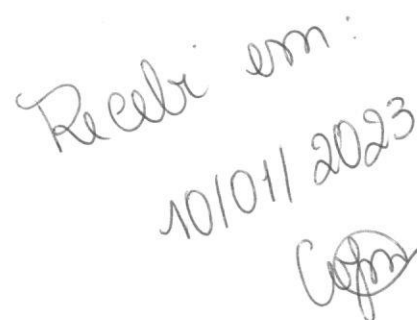 Recebi em:
10/01/2023